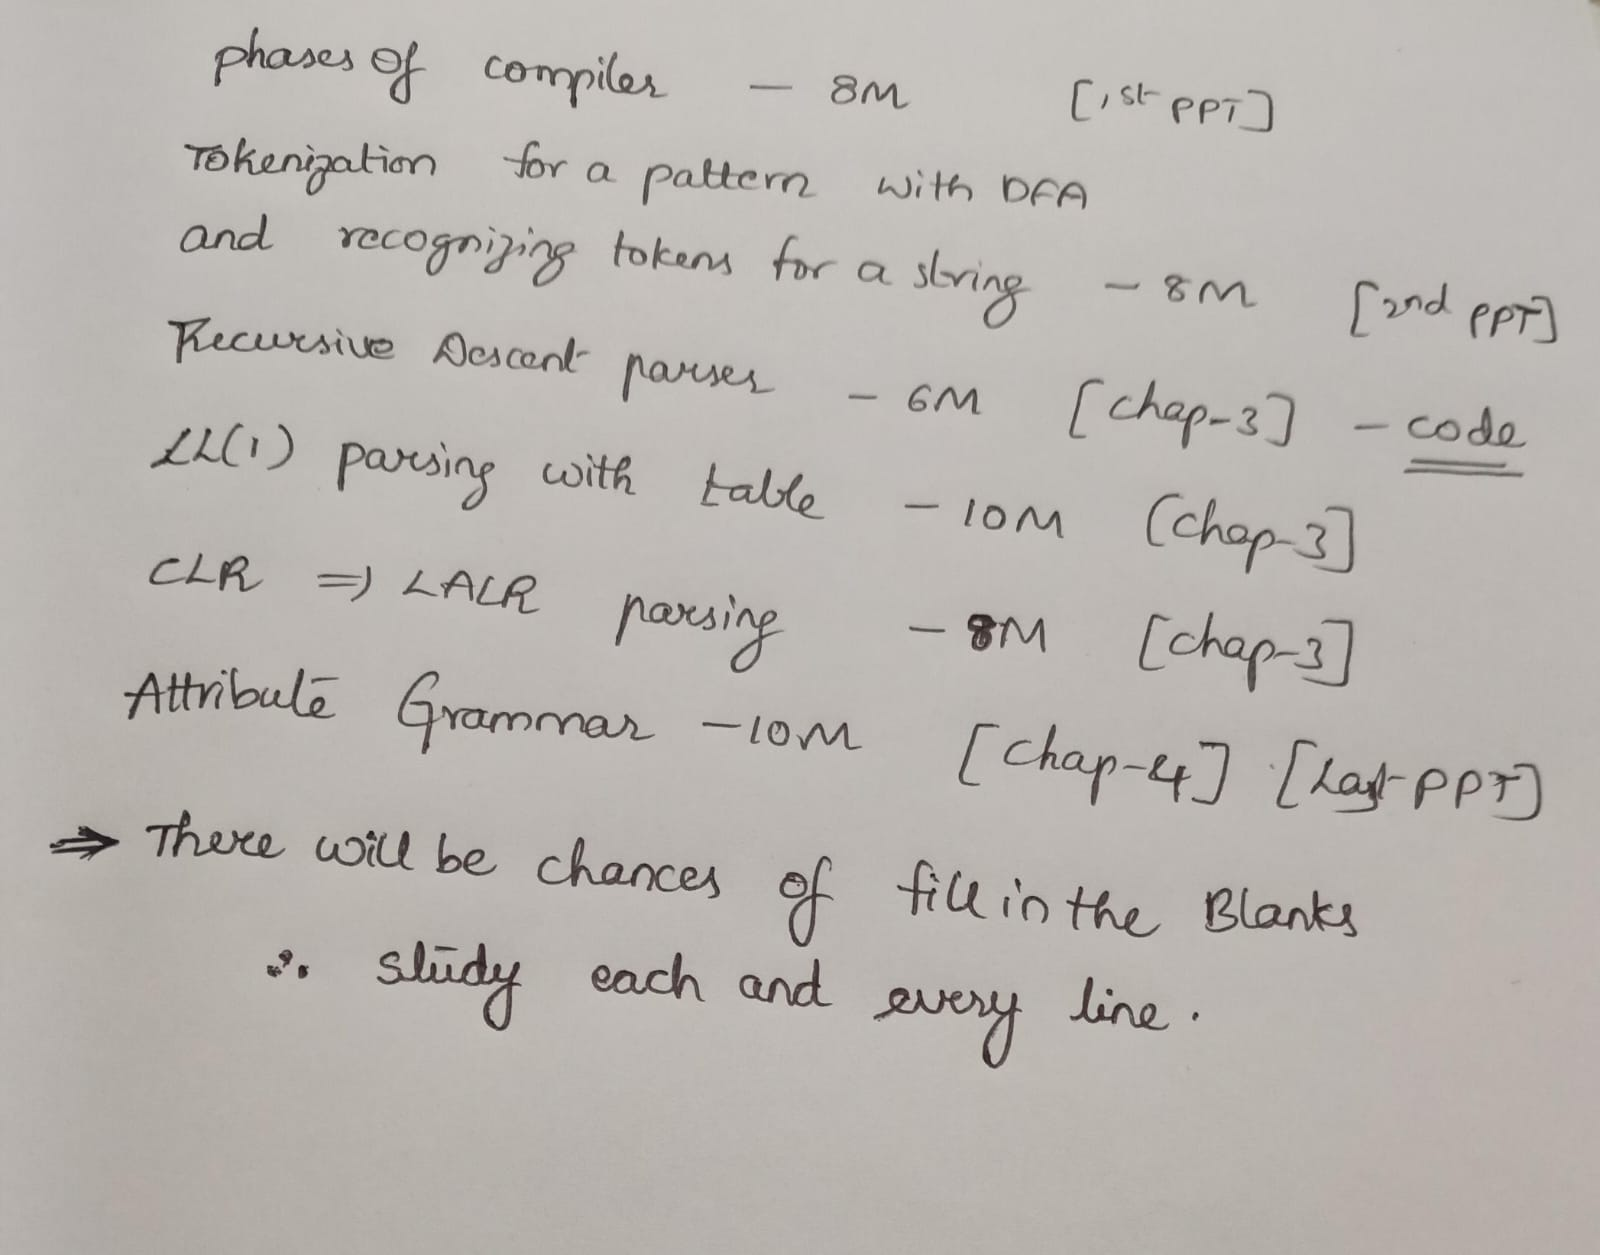 phases of compiler - 8M [1st PPT]
Tokenization for a pattern with DFA
and recognizing tokens for a string - 8M [2nd PPT]
Recursive Descent parser - 6M [chap-3] - code
LL(1) parsing with table - 10M [chap-3]
CLR => LALR parsing - 8M [chap-3]
Attribute Grammar - 10M [chap-4] [Last PPT]
⇒ There will be chances of fill in the Blanks
∴ study each and every line.